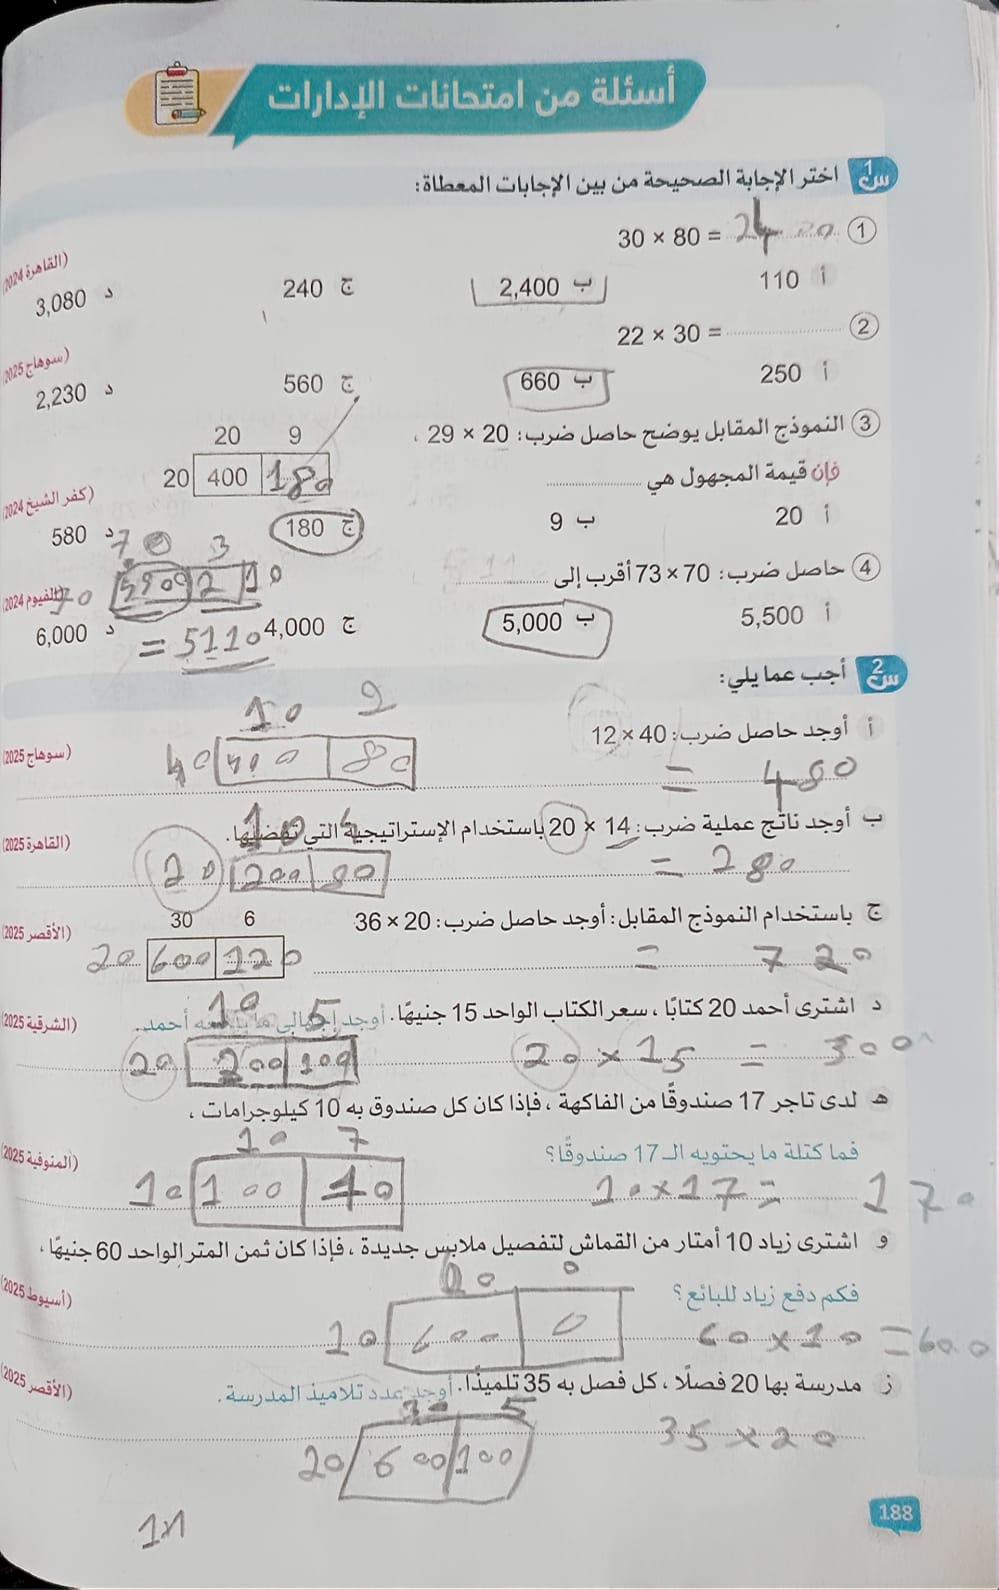 أسئلة من امتحانات الإدارات
س1 اختر الإجابة الصحيحة من بين الإجابات المعطاة:
1 30 × 80 = 2400 (القاهرة 2024)
أ 110 ب 2,400 ج 240 د 3,080
2 22 × 30 = (سوهاج 2025)
أ 250 ب 660 ج 560 د 2,230
3 النموذج المقابل يوضح حاصل ضرب: 20 × 29 ،
20 9
فإن قيمة المجهول هي
20 400 180
(كفر الشيخ 2024)
أ 20 ب 9 ج 180 د 580
70 3
4 حاصل ضرب: 70 × 73 أقرب إلى
70 4900 210
(الفيوم 2024)
أ 5,500 ب 5,000 ج 4,000 د 6,000
= 5110
س2 أجب عما يلي:
10 2
أ أوجد حاصل ضرب: 40 × 12 (سوهاج 2025)
40 400 80
= 480
ب أوجد ناتج عملية ضرب: 14 × 20 باستخدام الإستراتيجية التي تفضلها. (القاهرة 2025)
10 4
20 200 80
= 280
ج باستخدام النموذج المقابل: أوجد حاصل ضرب: 20 × 36 (الأقصر 2025)
30 6
20 600 120
= 720
د اشترى أحمد 20 كتابًا، سعر الكتاب الواحد 15 جنيهًا. أوجد إجمالي ما يدفعه أحمد. (الشرقية 2025)
10 5
20 200 100
20 × 15 = 300
هـ لدى تاجر 17 صندوقًا من الفاكهة، فإذا كان كل صندوق به 10 كيلوجرامات،
فما كتلة ما يحتويه الـ 17 صندوقًا؟ (المنوفية 2025)
10 7
10 100 70
10 × 17 = 170
و اشترى زياد 10 أمتار من القماش لتفصيل ملابس جديدة، فإذا كان ثمن المتر الواحد 60 جنيهًا،
فكم دفع زياد للبائع؟ (أسيوط 2025)
10 600 0
60 × 10 = 600
ز مدرسة بها 20 فصلًا، كل فصل به 35 تلميذًا. أوجد عدد تلاميذ المدرسة. (الأقصر 2025)
30 5
20 600 100
35 × 20
188